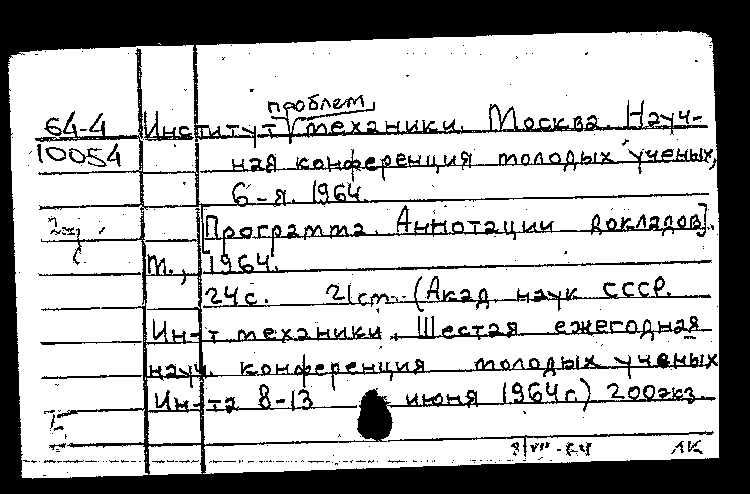 проблем
64-4 Институт √ механики. Москва. Науч-
10054 ная конференция молодых ученых,
6-я. 1964.
2 экз. [Программа. Аннотации докладов].
М., 1964.
24с. 21см. (Акад. наук СССР.
Ин-т механики. Шестая ежегодная
науч. конференция молодых ученых
Ин-та 8-13 июня 1964г.) 200экз.
Б
8/VII-64 ЛК